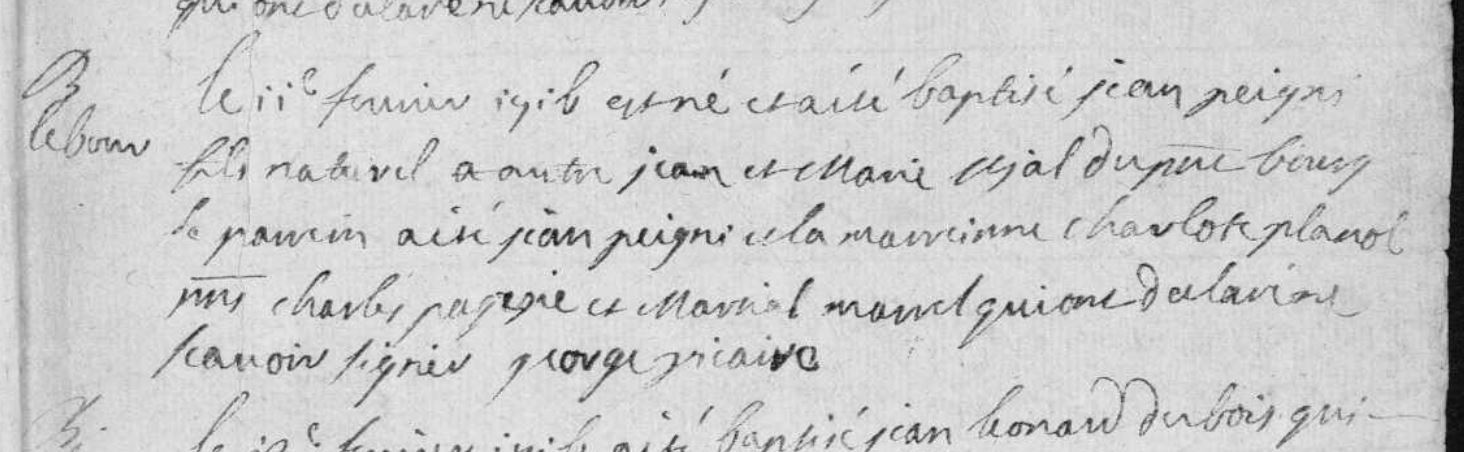 qui ont dclaré ne scavoir
B
le bour
le 11e feuvier 1716 est né et a été baptisé jean peigni
fils naturel a autre jean et Marie du pnt bourg
le parrein a été jean peigni et la marreinne charlote
pnts charles et Martial qui ont declaré ne
scavoir signer george vicaire
B
le 12e feuvier 1716 a été baptisé jean leonard dubois qui